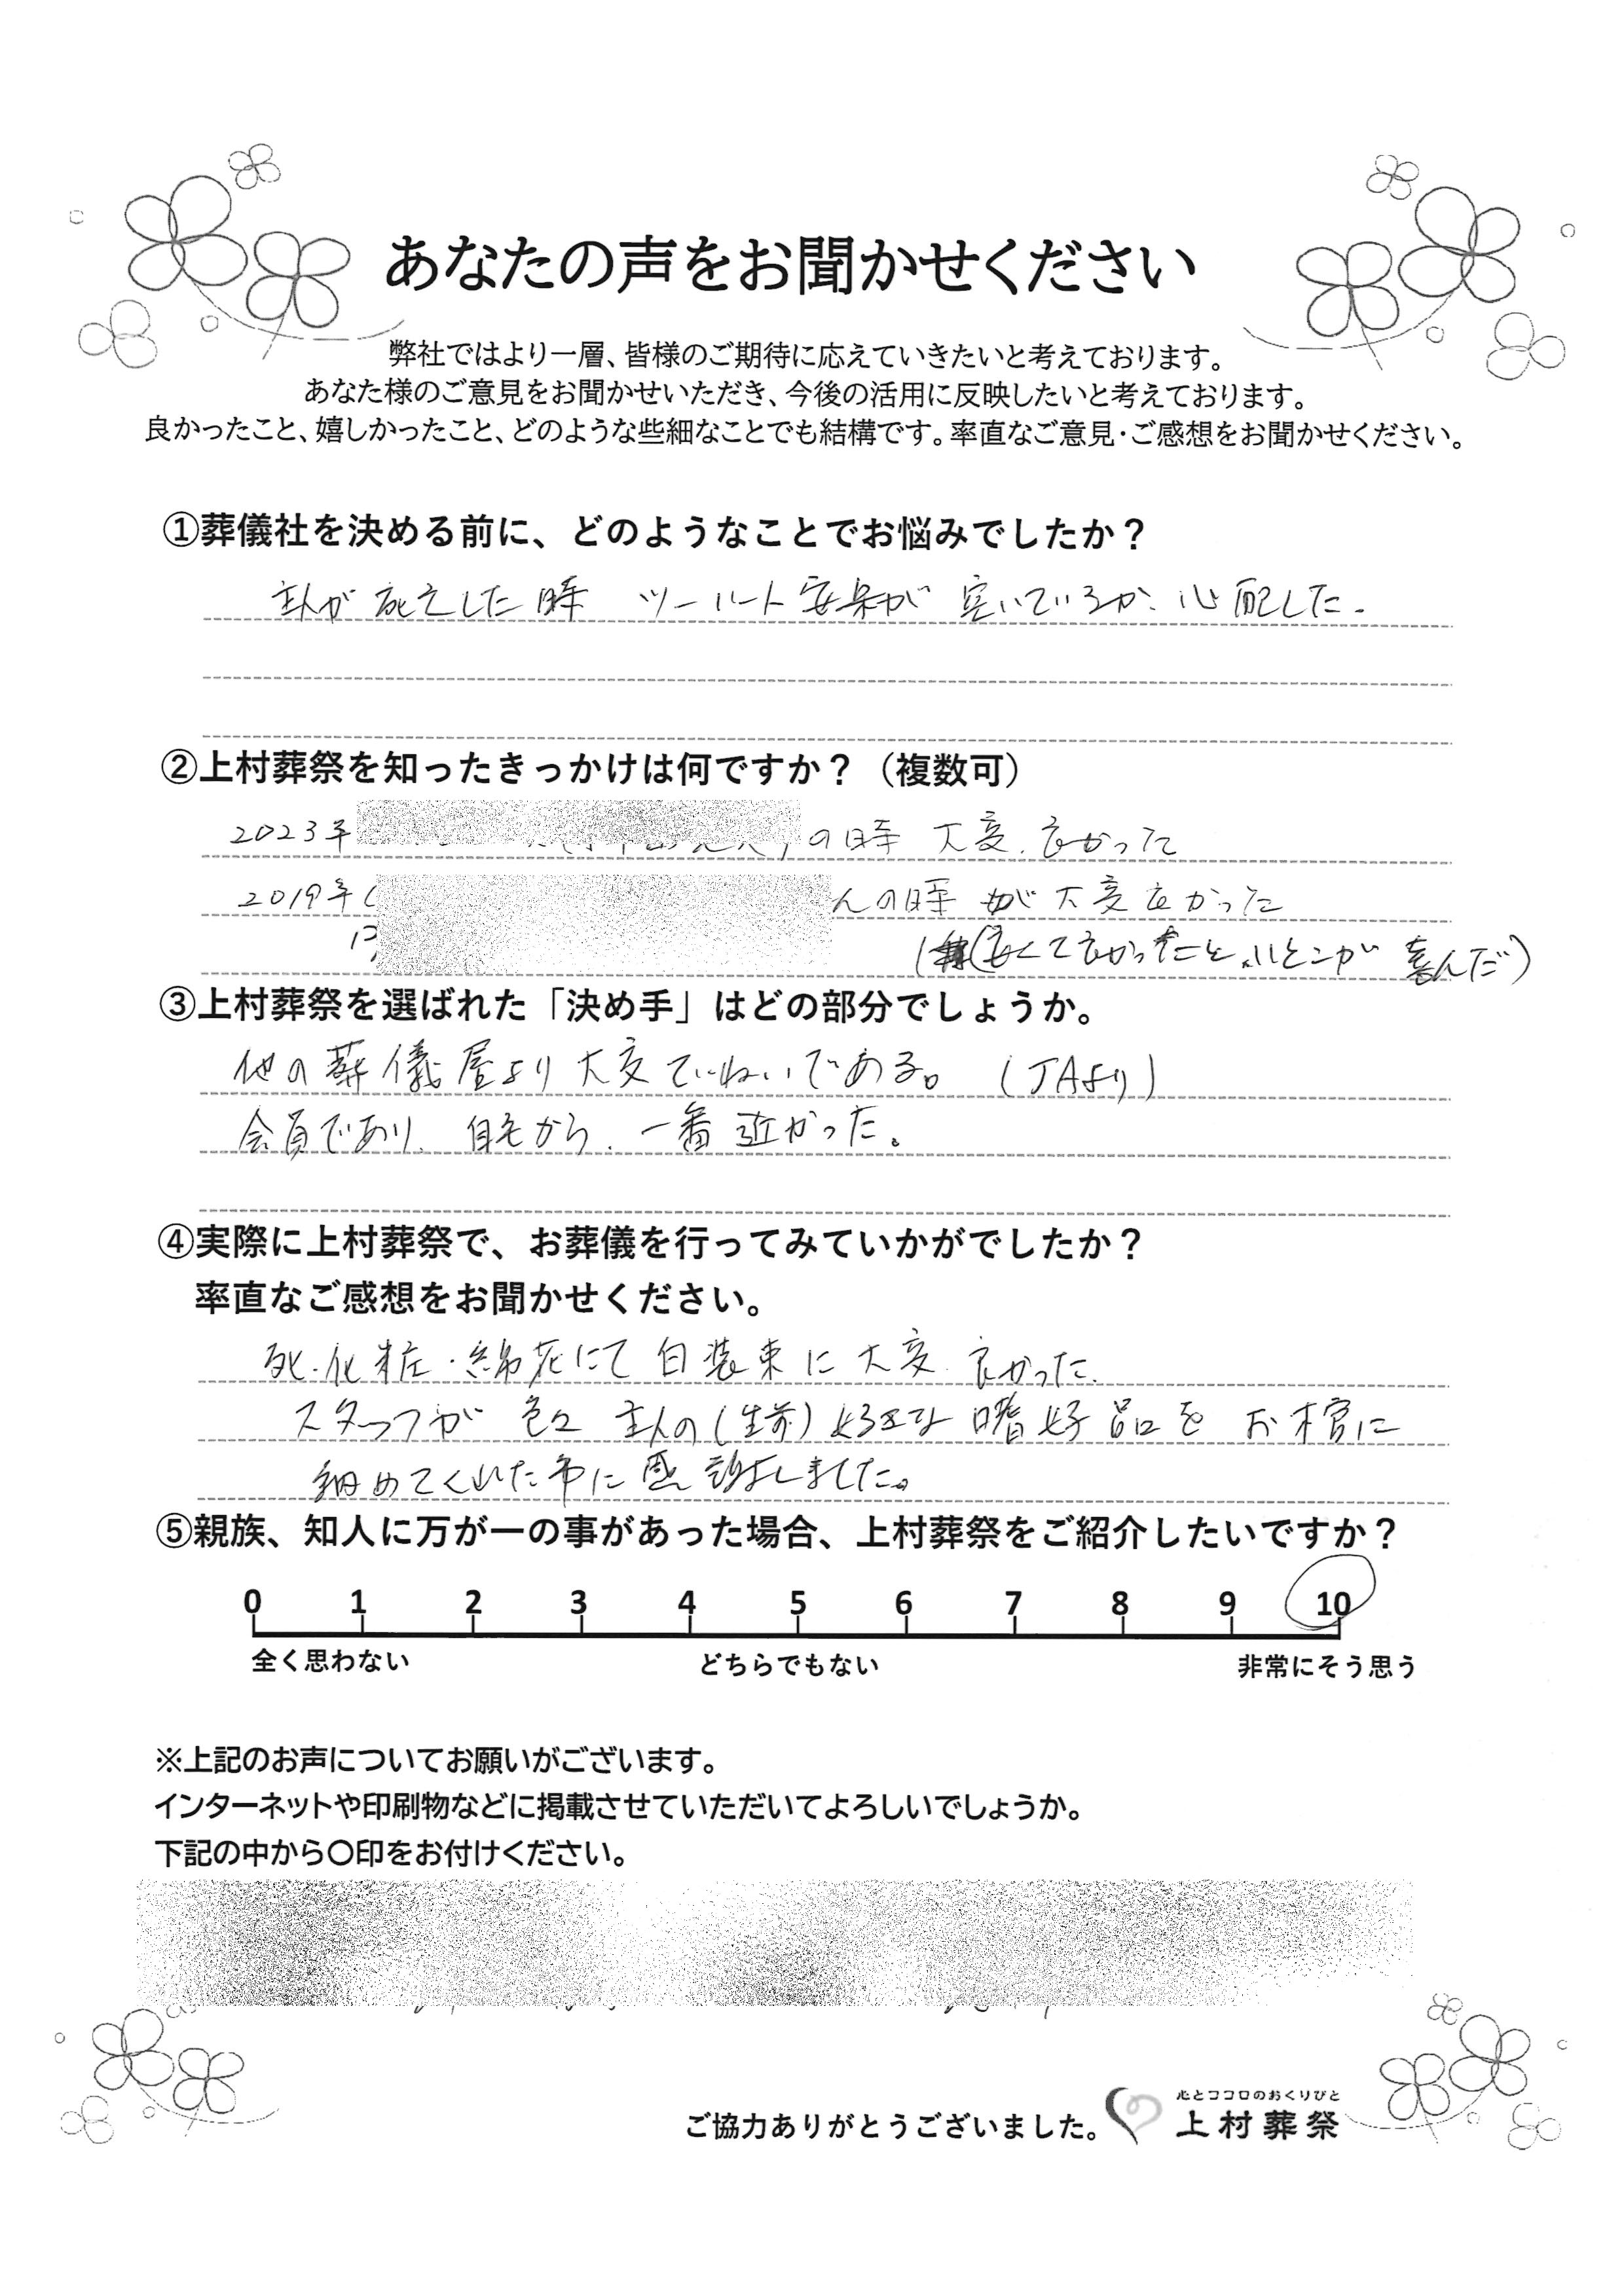 あなたの声をお聞かせください
弊社ではより一層、皆様のご期待に応えていきたいと考えております。
あなた様のご意見をお聞かせいただき、今後の活用に反映したいと考えております。
良かったこと、嬉しかったこと、どのような些細なことでも結構です。率直なご意見・ご感想をお聞かせください。
①葬儀社を決める前に、どのようなことでお悩みでしたか？
主人が死亡した時 ツーハート安曇が 空いているか、心配した。
②上村葬祭を知ったきっかけは何ですか？（複数可）
2023年 の時 大変、良かった
2019年 んの時 が大変良かった
(良くて良かったこと、いとこが 喜んだ)
③上村葬祭を選ばれた「決め手」はどの部分でしょうか。
他の葬儀屋より大変ていねいである。（JAより）
会員であり、自宅から、一番近かった。
④実際に上村葬祭で、お葬儀を行ってみていかがでしたか？
率直なご感想をお聞かせください。
死・化粧・綿花にて白装束に大変、良かった。
スタッフが 色々 主人の（生前）好きな 嗜好品を お棺に
納めてくれた事に感謝しました。
⑤親族、知人に万が一の事があった場合、上村葬祭をご紹介したいですか？
0 1 2 3 4 5 6 7 8 9 10
全く思わない どちらでもない 非常にそう思う
※上記のお声についてお願いがございます。
インターネットや印刷物などに掲載させていただいてよろしいでしょうか。
下記の中から〇印をお付けください。
心とココロのおくりびと
ご協力ありがとうございました。 上村葬祭